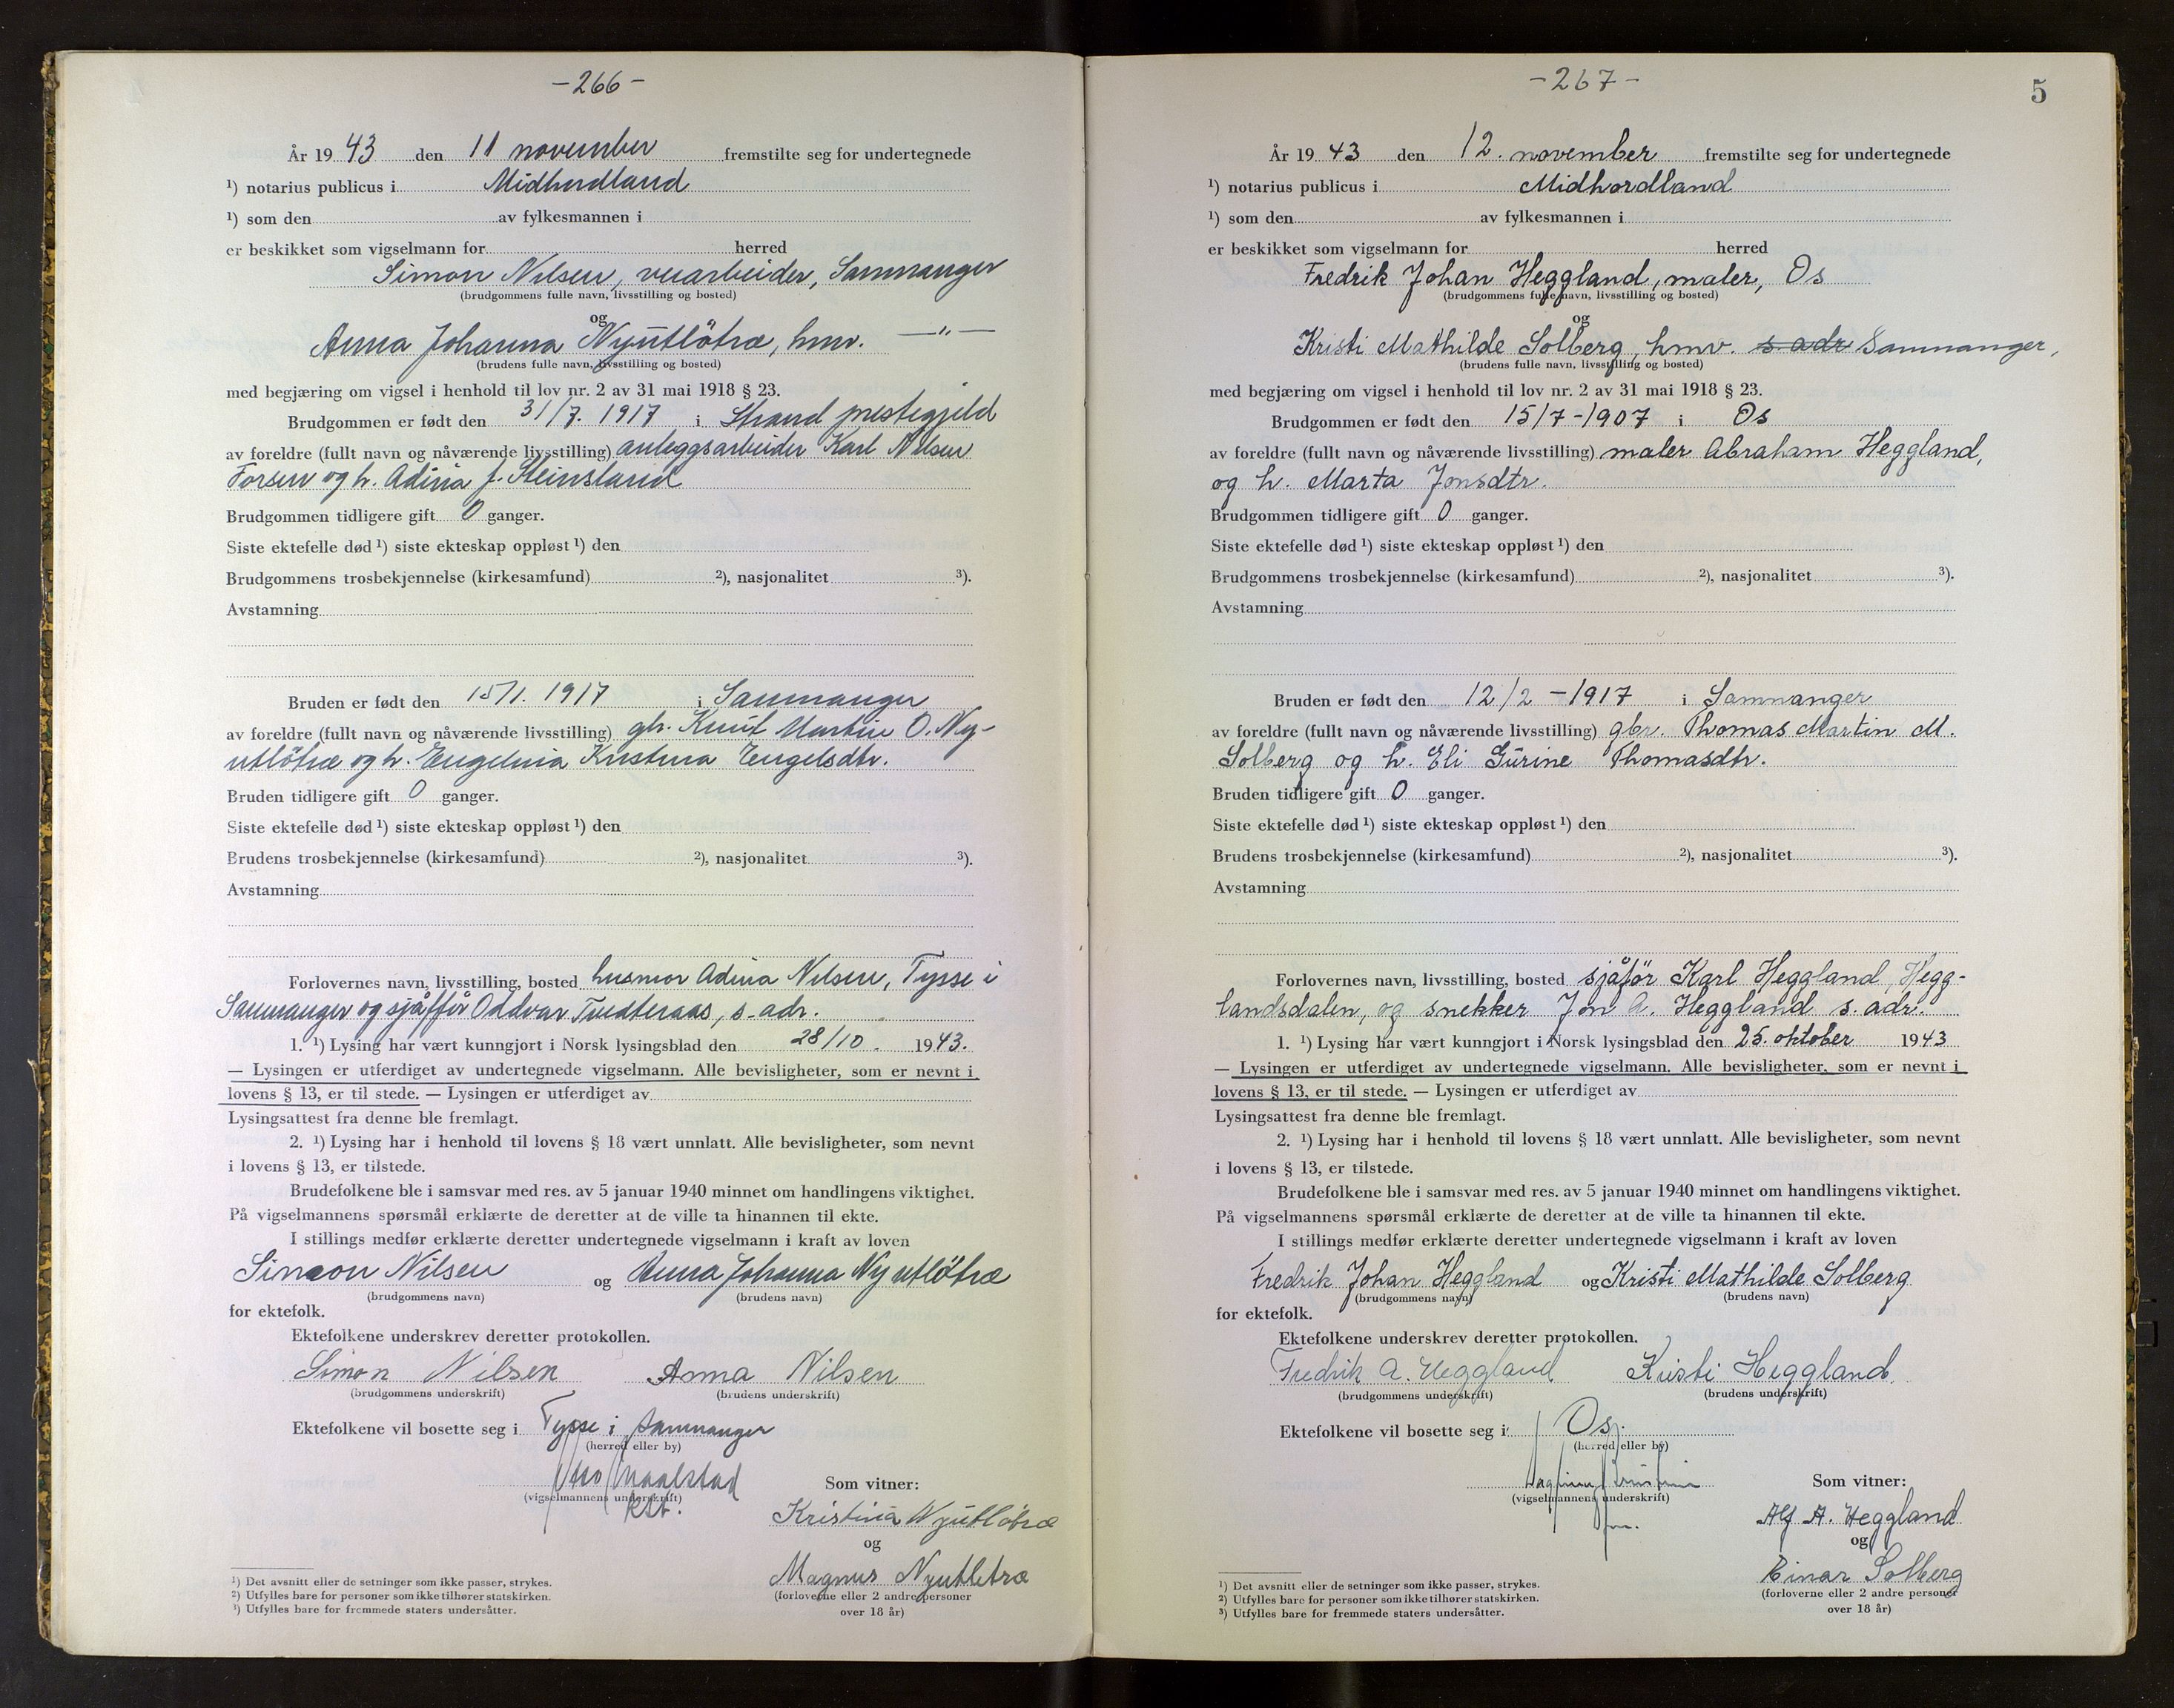 -266-
År 1943 den 11 november fremstilte seg for undertegnede
¹) notarius publicus i Midhordland
¹) som den av fylkesmannen i
er beskikket som vigselmann for herred
Simon Nilsen, veiarbeider, Samnanger
(brudgommens fulle navn, livsstilling og bosted)
og
Anna Johanna Nyutlötræ, hmv. —"—
(brudens fulle navn, livsstilling og bosted)
med begjæring om vigsel i henhold til lov nr. 2 av 31 mai 1918 § 23.
Brudgommen er født den 31/7. 1917 i Strand prestegjeld
av foreldre (fullt navn og nåværende livsstilling) anleggsarbeider Karl Nilsen
Forsen og h. Adina f. Steinsland
Brudgommen tidligere gift 0 ganger.
Siste ektefelle død ¹) siste ekteskap oppløst ¹) den
Brudgommens trosbekjennelse (kirkesamfund) ²), nasjonalitet ³).
Avstamning
Bruden er født den 15/1. 1917 i Samnanger
av foreldre (fullt navn og nåværende livsstilling) gbr. Knut Martin O. Ny-
utlötræ og h. Engelina Kristina Engelsdtr.
Bruden tidligere gift 0 ganger.
Siste ektefelle død ¹) siste ekteskap oppløst ¹) den
Brudens trosbekjennelse (kirkesamfund) ²), nasjonalitet ³).
Avstamning
Forlovernes navn, livsstilling, bosted husmor Adina Nilsen, Tysse i
Samnanger og sjåffør Oddvar Tveiteraas, s. adr.
1. ¹) Lysing har vært kunngjort i Norsk lysingsblad den 28/10. 1943.
— Lysingen er utferdiget av undertegnede vigselmann. Alle bevisligheter, som er nevnt i
lovens § 13, er til stede. — Lysingen er utferdiget av
Lysingsattest fra denne ble fremlagt.
2. ¹) Lysing har i henhold til lovens § 18 vært unnlatt. Alle bevisligheter, som nevnt
i lovens § 13, er tilstede.
Brudefolkene ble i samsvar med res. av 5 januar 1940 minnet om handlingens viktighet.
På vigselmannens spørsmål erklærte de deretter at de ville ta hinannen til ekte.
I stillings medfør erklærte deretter undertegnede vigselmann i kraft av loven
Simon Nilsen og Anna Johanna Nyutlötræ
(brudgommens navn) (brudens navn)
for ektefolk.
Ektefolkene underskrev deretter protokollen.
Simon Nilsen Anna Nilsen
(brudgommens underskrift) (brudens underskrift)
Ektefolkene vil bosette seg i Tysse i Samnanger
(herred eller by)
Maalstad
(vigselmannens underskrift) Som vitner:
kst.
Kristina Nyutlötræ
og
Magnus Nyutletræ
(forloverne eller 2 andre personer
over 18 år)
¹) Det avsnitt eller de setninger som ikke passer, strykes.
²) Utfylles bare for personer som ikke tilhører statskirken.
³) Utfylles bare for fremmede staters undersåtter.
-267-
5
År 1943 den 12. november fremstilte seg for undertegnede
¹) notarius publicus i Midhordland
¹) som den av fylkesmannen i
er beskikket som vigselmann for herred
Fredrik Johan Heggland, maler, Os
(brudgommens fulle navn, livsstilling og bosted)
og
Kristi Mathilde Solberg, hmv. s. adr Samnanger,
(brudens fulle navn, livsstilling og bosted)
med begjæring om vigsel i henhold til lov nr. 2 av 31 mai 1918 § 23.
Brudgommen er født den 15/7-1907 i Os
av foreldre (fullt navn og nåværende livsstilling) maler Abraham Heggland,
og h. Marta Jonsdtr.
Brudgommen tidligere gift 0 ganger.
Siste ektefelle død ¹) siste ekteskap oppløst ¹) den
Brudgommens trosbekjennelse (kirkesamfund) ²), nasjonalitet ³).
Avstamning
Bruden er født den 12/2-1917 i Samnanger
av foreldre (fullt navn og nåværende livsstilling) gbr. Thomas Martin M.
Solberg og h. Eli Gurine Thomasdtr.
Bruden tidligere gift 0 ganger.
Siste ektefelle død ¹) siste ekteskap oppløst ¹) den
Brudens trosbekjennelse (kirkesamfund) ²), nasjonalitet ³).
Avstamning
Forlovernes navn, livsstilling, bosted sjåför Karl Heggland, Hegg-
landsdalen, og snekker Jon A. Heggland s. adr.
1. ¹) Lysing har vært kunngjort i Norsk lysingsblad den 25. oktober 1943
— Lysingen er utferdiget av undertegnede vigselmann. Alle bevisligheter, som er nevnt i
lovens § 13, er til stede. — Lysingen er utferdiget av
Lysingsattest fra denne ble fremlagt.
2. ¹) Lysing har i henhold til lovens § 18 vært unnlatt. Alle bevisligheter, som nevnt
i lovens § 13, er tilstede.
Brudefolkene ble i samsvar med res. av 5 januar 1940 minnet om handlingens viktighet.
På vigselmannens spørsmål erklærte de deretter at de ville ta hinannen til ekte.
I stillings medfør erklærte deretter undertegnede vigselmann i kraft av loven
Fredrik Johan Heggland og Kristi Mathilde Solberg
(brudgommens navn) (brudens navn)
for ektefolk.
Ektefolkene underskrev deretter protokollen.
Fredrik A. Heggland Kristi Heggland.
(brudgommens underskrift) (brudens underskrift)
Ektefolkene vil bosette seg i Os.
(herred eller by)
(vigselmannens underskrift) Som vitner:
Alf A. Heggland
og
Einar Solberg
(forloverne eller 2 andre personer
over 18 år)
¹) Det avsnitt eller de setninger som ikke passer, strykes.
²) Utfylles bare for personer som ikke tilhører statskirken.
³) Utfylles bare for fremmede staters undersåtter.